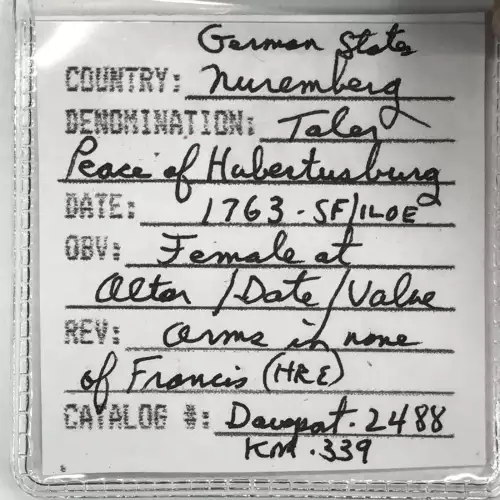 German States
COUNTRY: Nuremberg
DENOMINATION: Taler
Peace of Hubertusburg
DATE: 1763 - SF/ILOE
OBV: Female at
Altar / Date / Value
REV: Arms in name
of Francis (HRE)
CATALOG #: Davepat. 2488
KM. 339